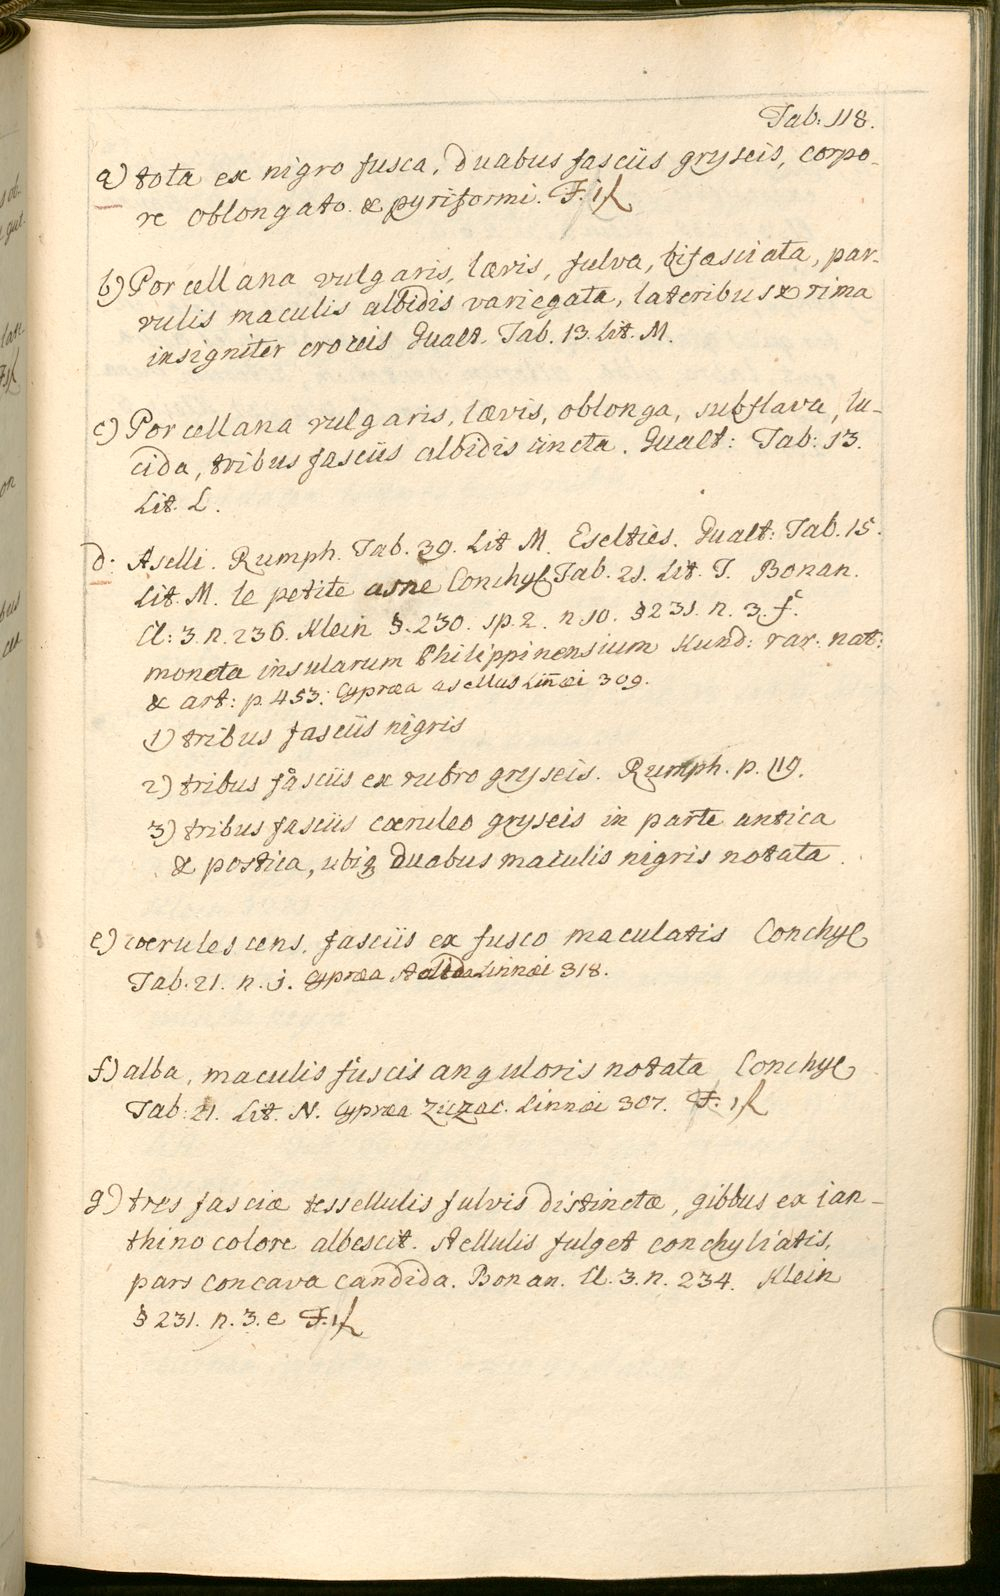 Tab: 118.
a) tota ex nigro fusca, duabus fasciis gryseis, corpo-
re oblongato & pyriformi. F. 1
b) Porcellana vulgaris, lævis, fulva, bifasciata, par-
vulis maculis albidis variegata, lateribus & rima
insigniter croceis Gualt. Tab. 13. Lit. M.
c) Porcellana vulgaris, lævis, oblonga, subflava, lu-
cida, tribus fasciis albidis cincta. Gualt: Tab: 13.
Lit. L.
d: Aselli. Rumph. Tab. 39. Lit M. Eselties. Gualt: Tab. 15.
Lit. M. le petite asne Conchyl Tab. 21. Lit. T. Bonan.
Cl: 3. n. 236. Klein §. 230. sp. 2. n. 10. § 231. n. 3. f.
moneta insularum Philippinensium Kund: rar. nat:
& art: p. 453. Cypræa asellus Linnæi 309.
1) tribus fasciis nigris
2) tribus fasciis ex rubro gryseis. Rumph. p. 119.
3) tribus fasciis cœruleo gryseis in parte antica
& postica, ubiq duabus maculis nigris notata.
e) cœrulescens, fasciis ex fusco maculatis Conchyl
Tab. 21. n. j. Cypræa stolida Linnæi 318.
f) alba, maculis fuscis anguloris notata Conchyl
Tab: 21. Lit. N. Cypræa Ziczac. Linnæi 307. F. 1
g) tres fasciæ tessellulis fulvis distinctæ, gibbus ex ian-
thino colore albescit. stellulis fulget conchyliatis,
pars concava candida. Bonan. Cl. 3. n. 234. Klein
§ 231. n. 3. e F. 1